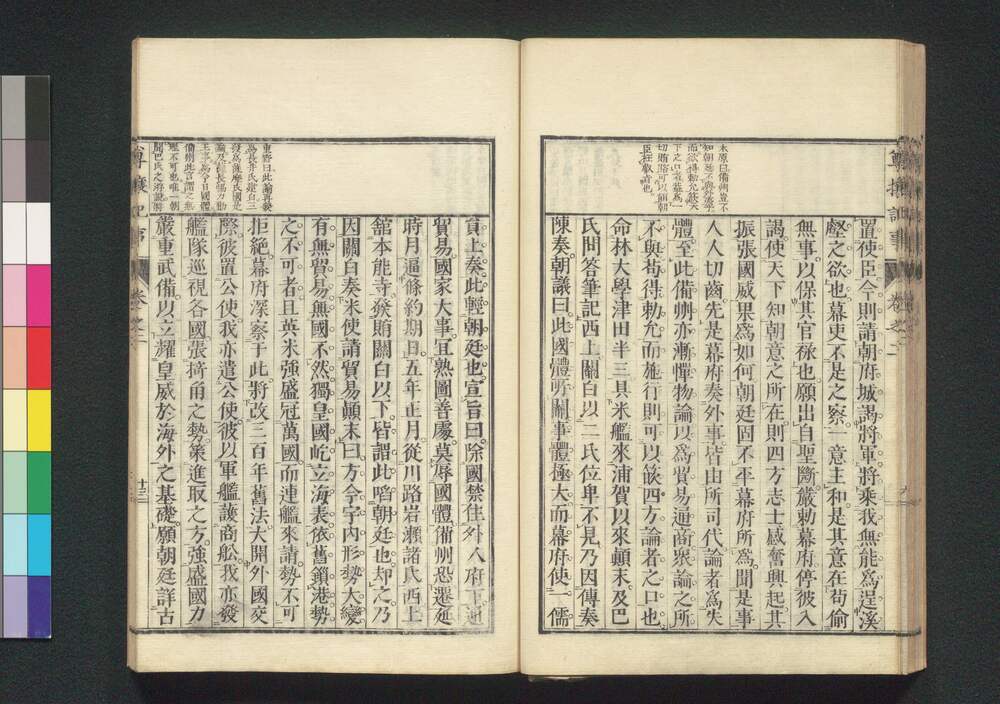 置使臣令則請朝府城謁將軍將乘我無能爲逞溪
壑之欲也幕吏不是之察一意主和是其意在苟偷
無事以保其官祿也願出自聖斷嚴勅幕府停彼入
謁使天下知朝意之所在則四方志士感奮興起其
振張國威果爲如何朝廷固不平幕府所爲聞是事
人人切齒先是幕府奏外事皆由所司代論者爲失
體至此備州亦漸憚物論以爲貿易通商衆論之所
不與苟得勅允而施行則可以箝四方論者之口也
命林大學津田半三具米艦來浦賀以來顛末及巴
氏問答筆記西上關白以二氏位卑不見乃因傳奏
陳奏朝議曰此國體所關事體極大而幕府使一儒
貢上奏此輕朝廷也宣旨曰除國禁住外人府下通
貿易國家大事宜熟圖善處莫辱國體備州恐遷延
時月逼條約期日五年正月從川路岩瀨諸氏西上
舘本能寺發賄關白以下皆謂此啗朝廷也却之乃
因關白奏米使請貿易顛末曰方今宇內形勢大變
有無貿易無國不然獨皇國屹立海表依舊鎖港勢
之不可者且英米強盛冠萬國而連艦來請勢不可
拒絕幕府深察于此將改三百年舊法大開外國交
際彼置公使我亦遣公使彼以軍艦護商舩我亦發
艦隊巡視各國張掎角之勢策進取之方強盛國力
嚴重武備以立耀皇威於海外之基礎願朝廷詳古
卷之二
廿三